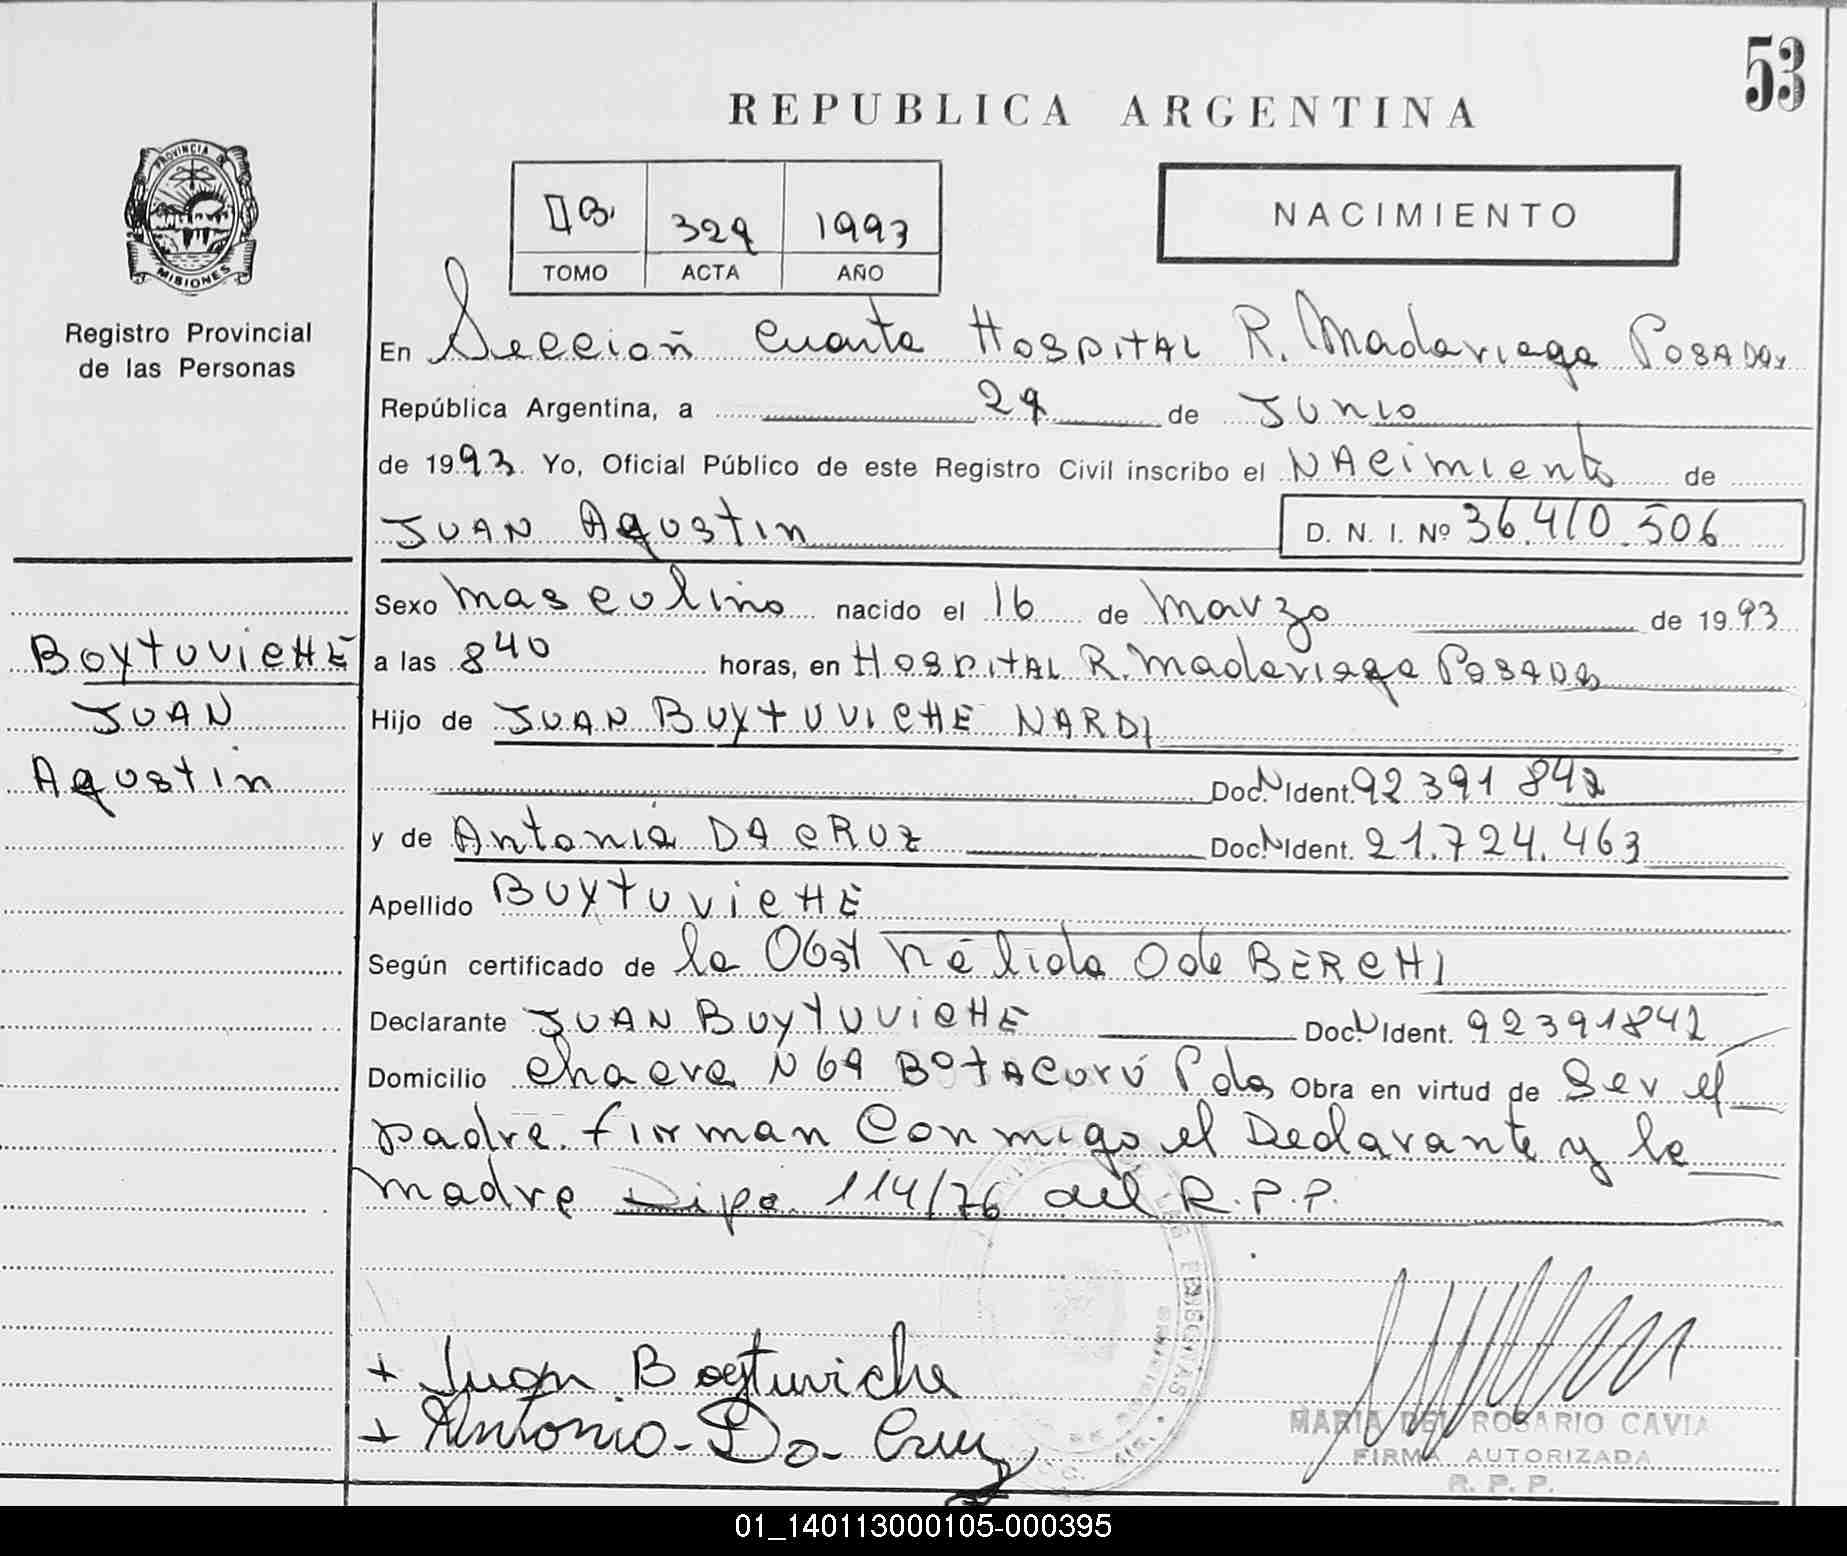 53
REPUBLICA ARGENTINA
PROVINCIA DE
MISIONES
Registro Provincial
de las Personas
II B. 329 1993
TOMO ACTA AÑO
NACIMIENTO
En Sección Cuarta Hospital R. Madariaga Posadas
República Argentina, a 29 de Junio
de 1993. Yo, Oficial Público de este Registro Civil inscribo el Nacimiento de
JUAN Agustin D. N. I. Nº 36.410.506
Sexo Masculino nacido el 16 de Marzo de 1993
BoytuvicHE
JUAN
Agustin
a las 8 40 horas, en Hospital R. Madariaga Posadas
Hijo de JUAN BUYTUVICHE NARDI
Doc. N Ident. 92 391 842
y de Antonia DA CRUZ Doc. N Ident. 21.724.463
Apellido BUYTUVICHE
Según certificado de la Obst Nélida O de BERCHI
Declarante JUAN BUYTUVICHE Doc. N Ident. 92391842
Domicilio Chacra N 69 Pdas Obra en virtud de Ser el
padre. firman Conmigo el Declarante y la
madre Dipo. 114/76 del R.P.P.
+ Juan Boytuviche
+ Antonia - Da - Cruz
MARIA DEL ROSARIO CAVIA
FIRMA AUTORIZADA
R. P. P.
01_140113000105-000395